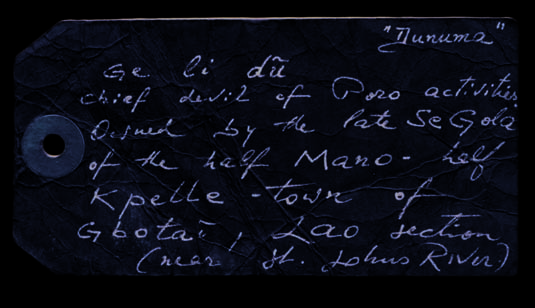 "Dunuma"
Ge li dũ
chief devil of Poro activities
Owned by the late Se Gola
of the half Mano - half
Kpelle - town of
Gbotai, Lao section
(near St. Johns River)